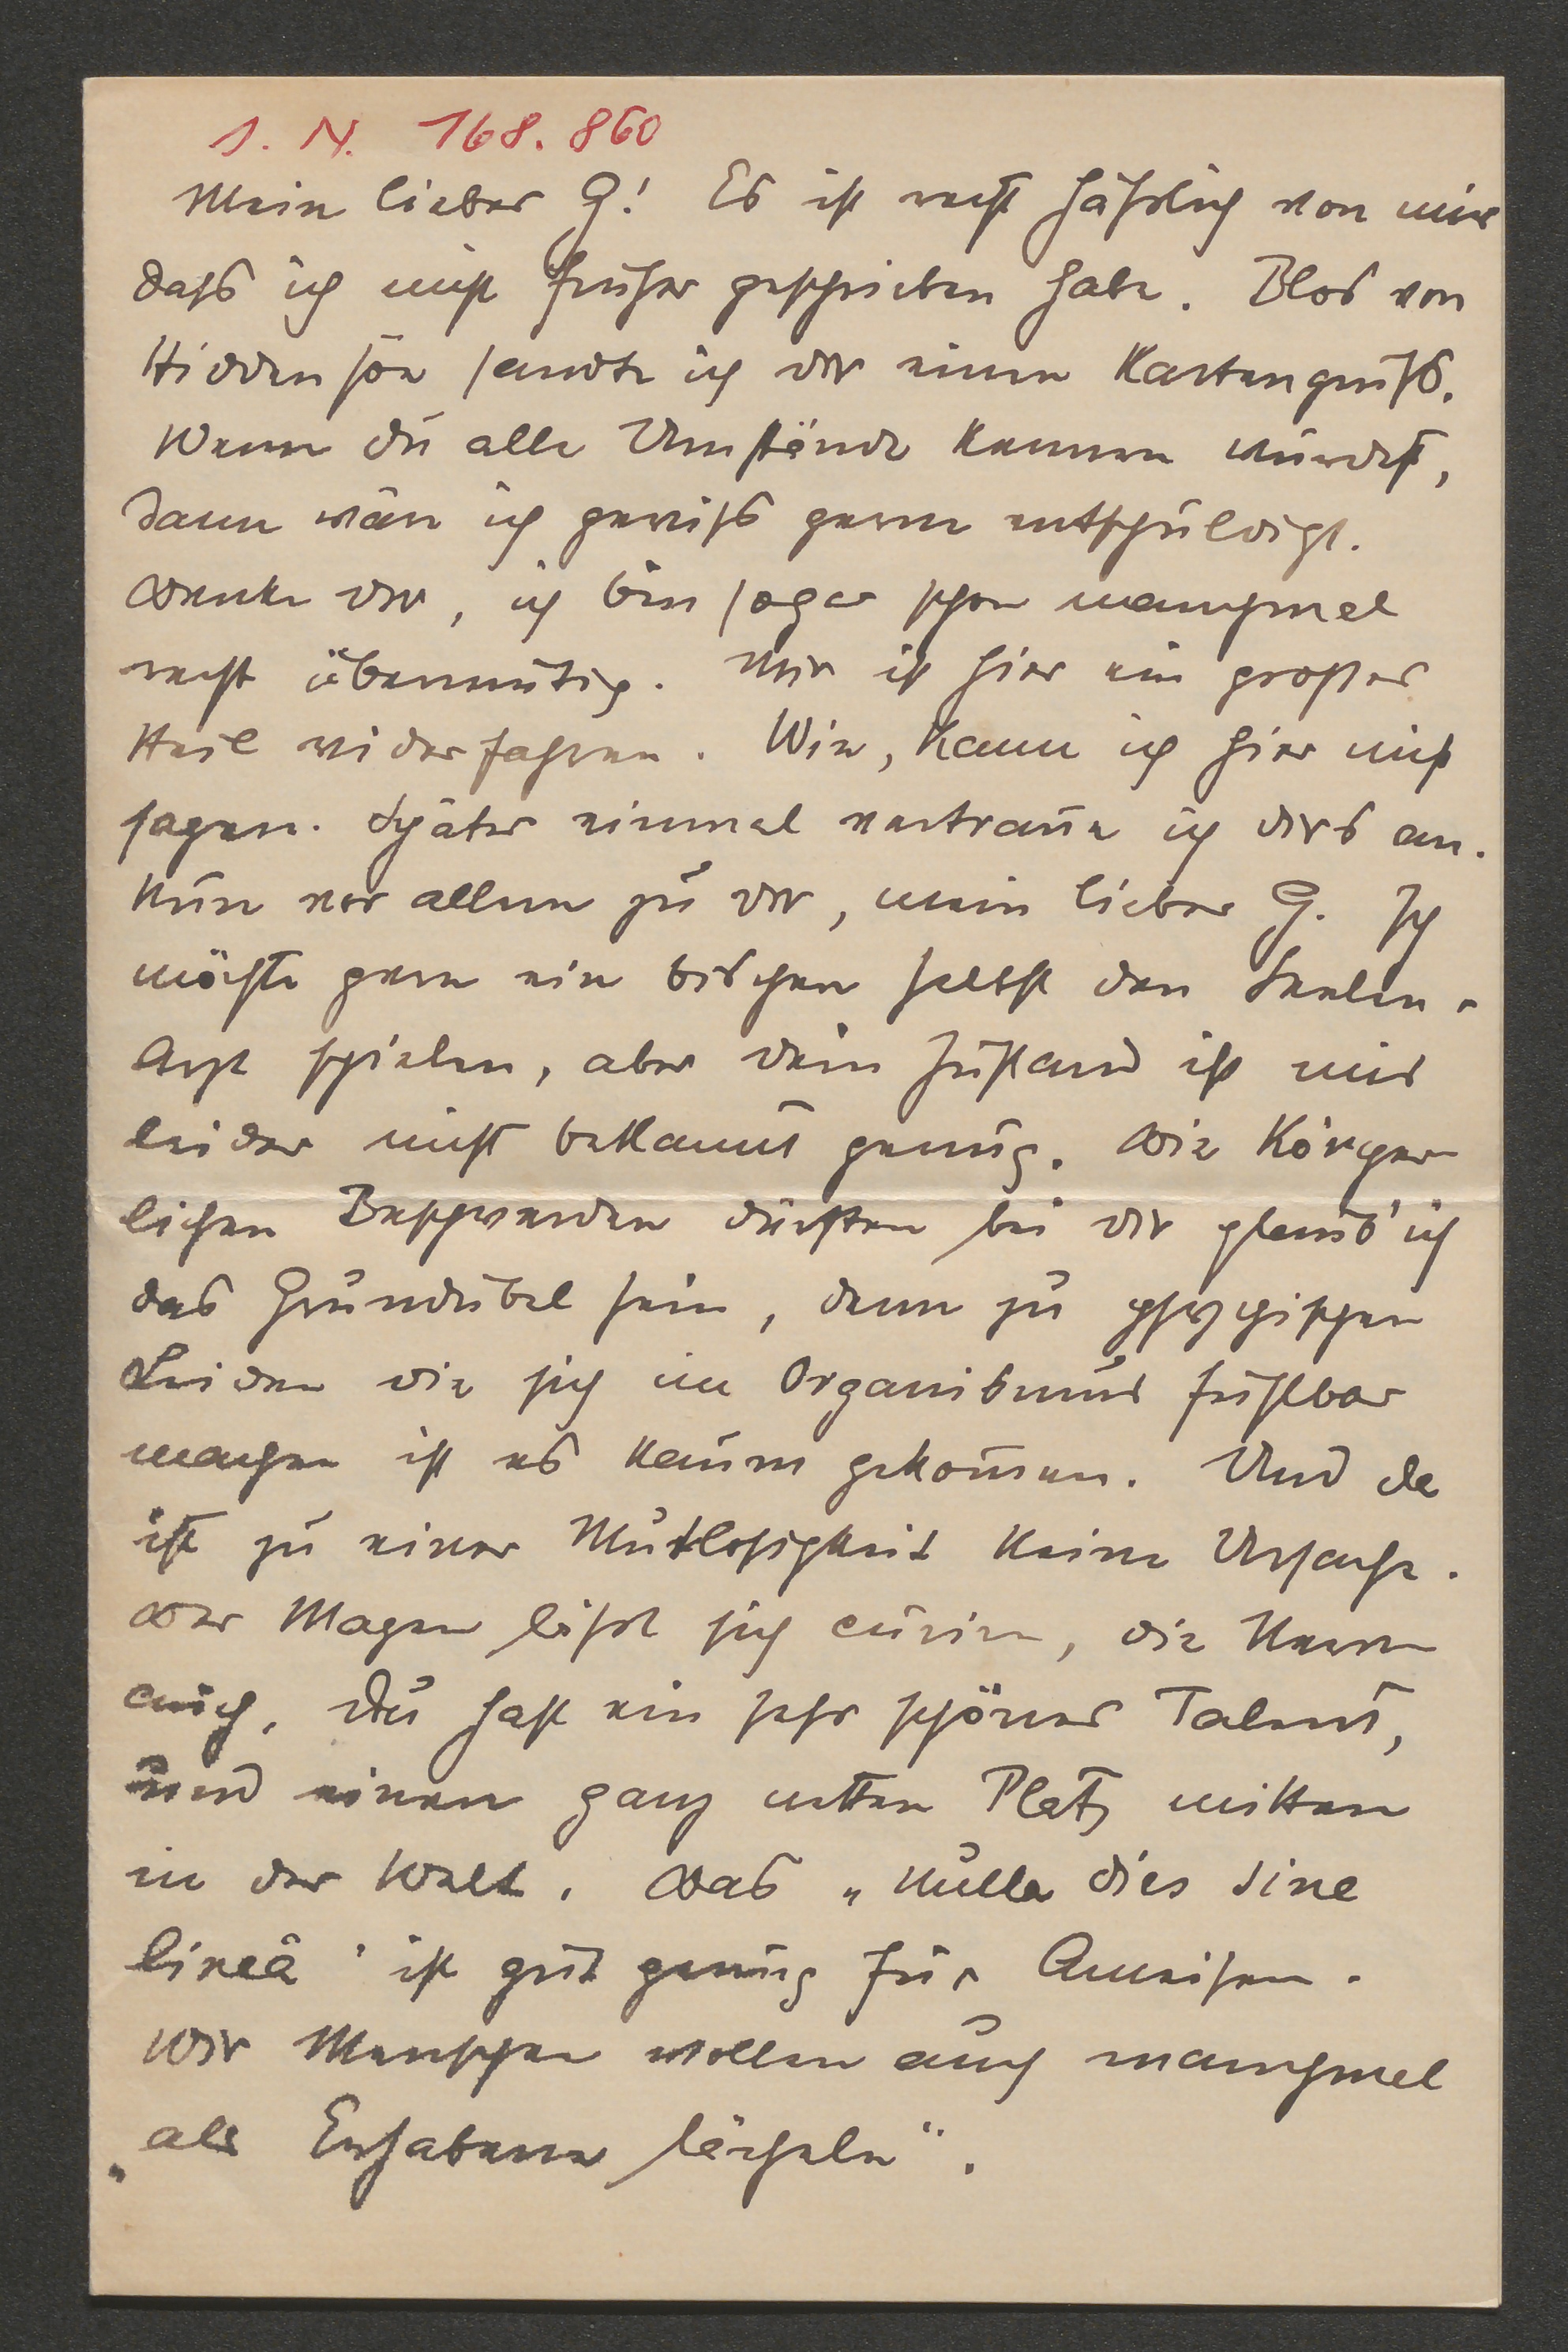 I. N. 168.860
Mein lieber G! Es ist recht häßlich von mir
dass ich nicht früher geschrieben habe. Blos von
Hiddensöe sandte ich dir einen Kartengruß.
Wenn du alle Umstände kennen würdest,
dann wäre ich gewiß gerne entschuldigt.
Denke dir, ich bin sogar schon manchmal
recht übermütig. Mir ist hier ein großes
Heil widerfahren. Wie, kann ich hier nicht
sagen. Später einmal vertraue ich dirs an.
Nun vor allem zu dir, mein lieber G. Ich
möchte gern ein bischen selbst den Seelen-
Arzt spielen, aber dein Zustand ist mir
leider nicht bekannt genug. Die körper-
lichen Beschwerden dürften bei dir glaub' ich
das Grundübel sein, denn zu psychischen
Leiden die sich im Organismus fühlbar
machen ist es kaum gekommen. Und da
ist zu einer Mutlosigkeit keine Ursache.
Der Magen läßt sich curiren, die Nerven
auch. Du hast ein sehr schönes Talent,
und einen ganz netten Platz mitten
in der Welt. Das „Nulla dies sine
lineâ" ist gut genug für Ameisen.
Wir Menschen wollen auch manchmal
„als Erhabene lächeln".